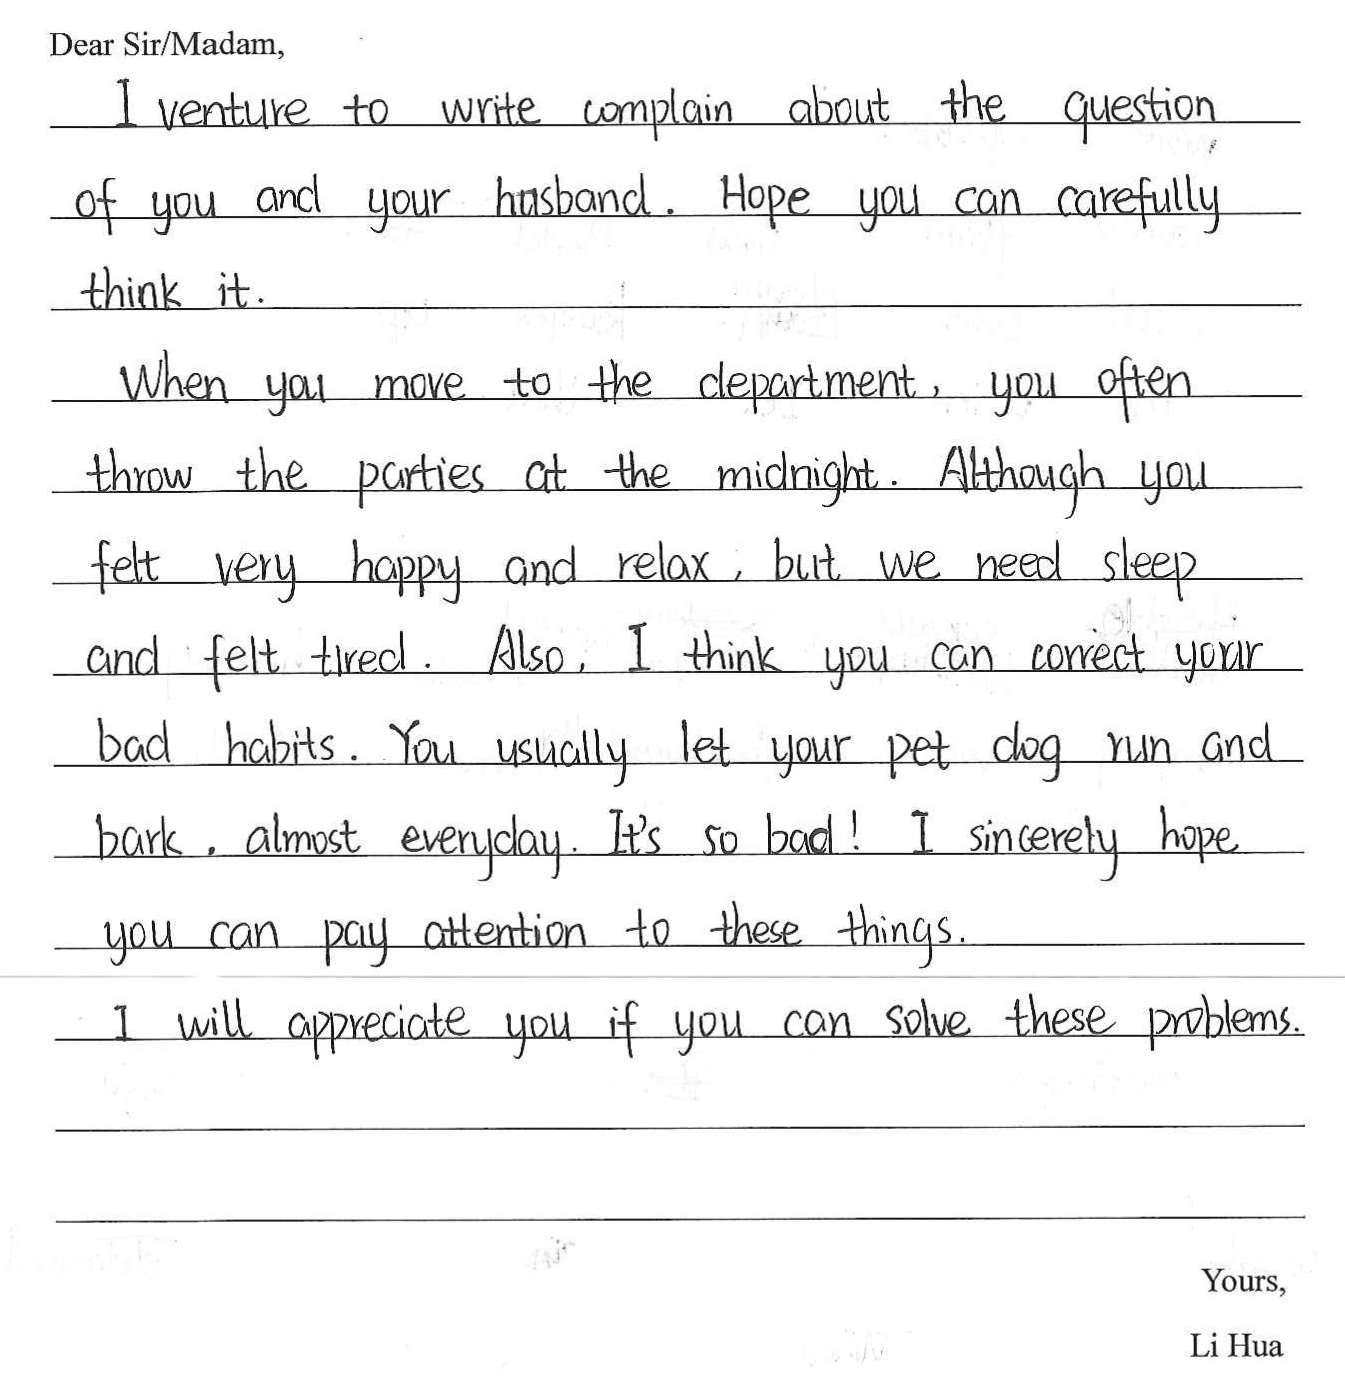 Dear Sir/Madam,
I venture to write complain about the question
of you and your husband. Hope you can carefully
think it.
When you move to the department, you often
throw the parties at the midnight. Although you
felt very happy and relax, but we need sleep
and felt tired. Also, I think you can correct your
bad habits. You usually let your pet dog run and
bark, almost everyday. It's so bad! I sincerely hope
you can pay attention to these things.
I will appreciate you if you can solve these problems.
Yours,
Li Hua